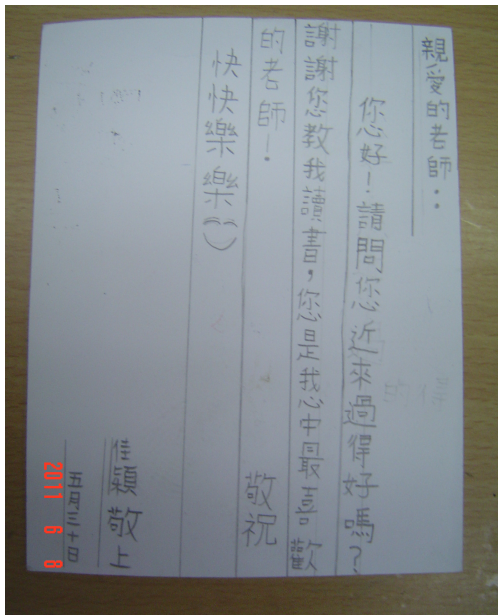 親愛的老師：
您好！請問您近來過得好嗎？
謝謝您教我讀書，您是我心中最喜歡
的老師！
敬祝
快快樂樂
佳穎敬上
五月三十日
2011 6 8